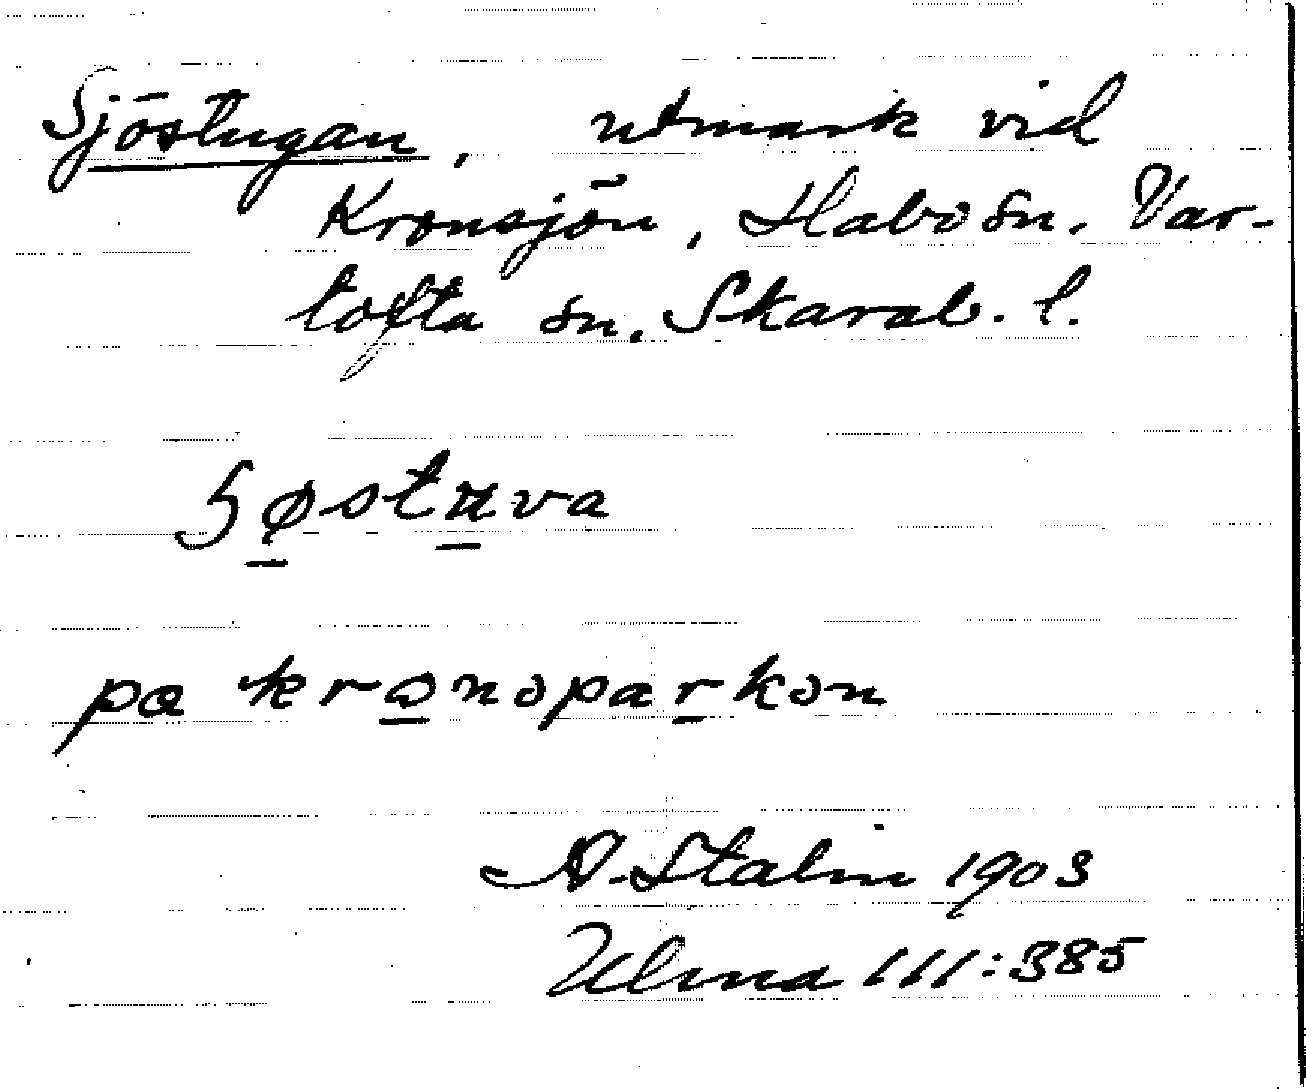 Sjöstugan, utmark vid
Kronsjön, Habo sn. Var-
tofta sn. Skarab. l.
ʃøstuva
pa kronoparkon
A. Stalin 1903
Ulma 111:385